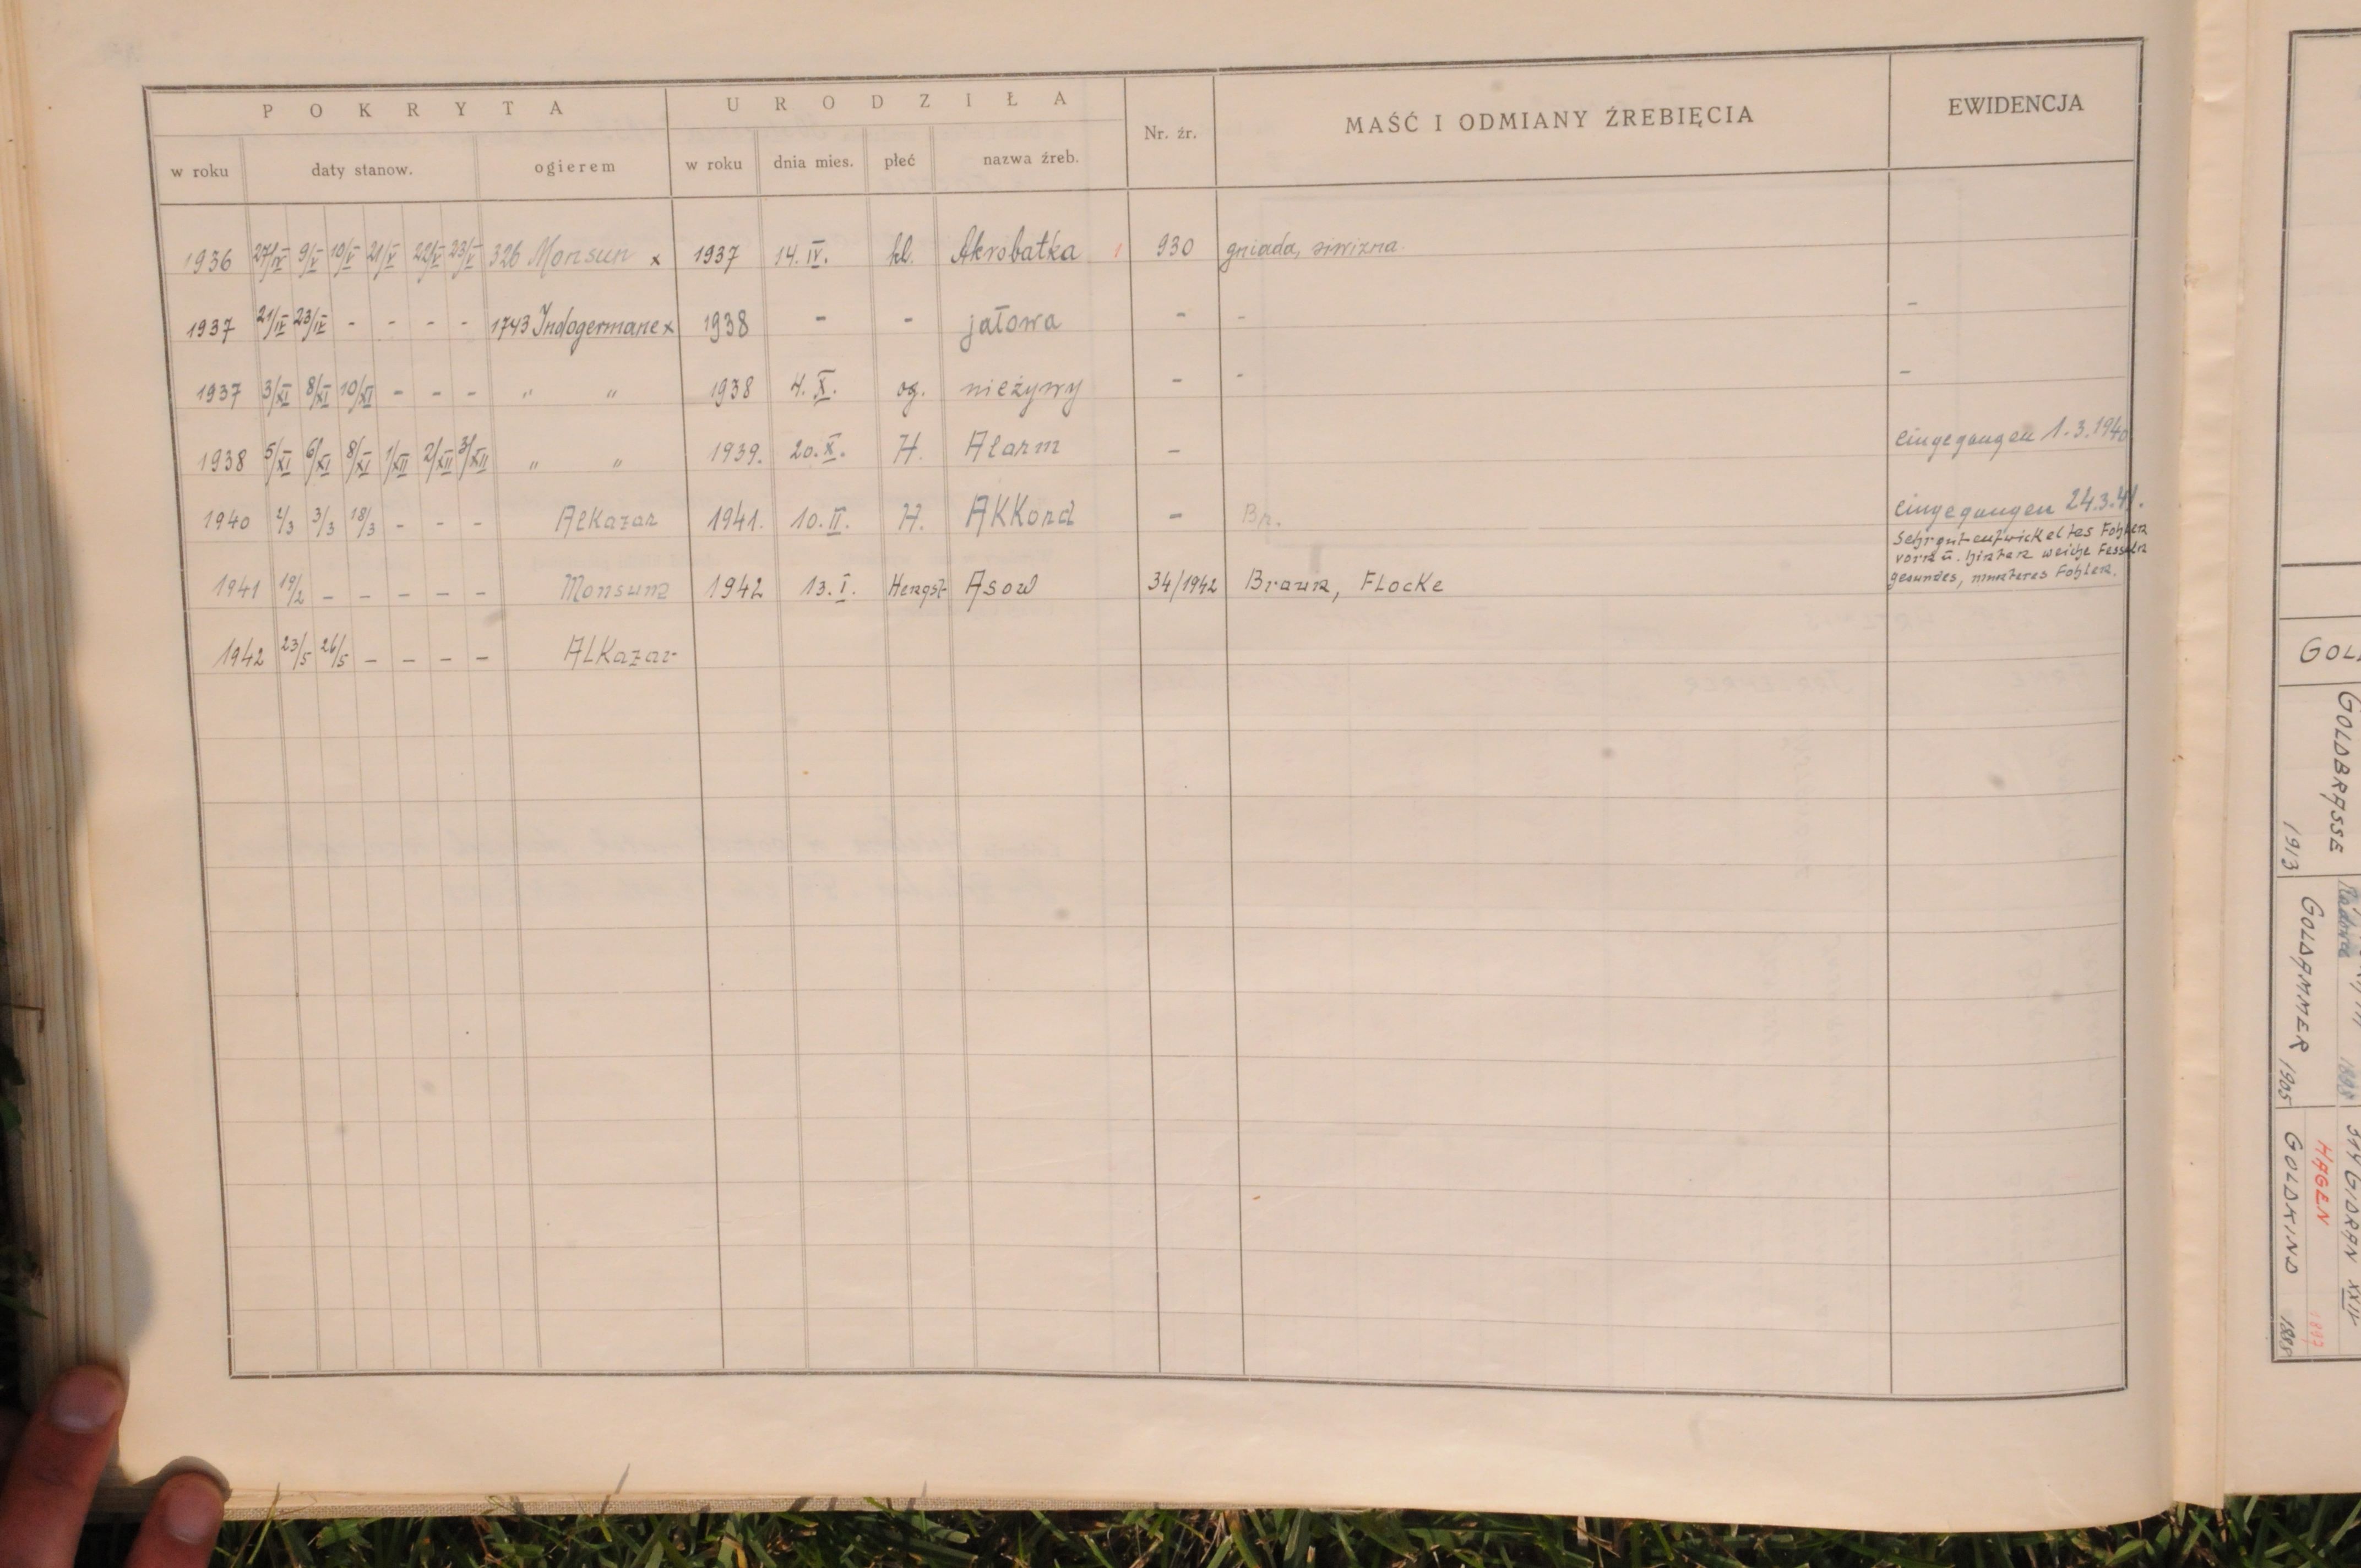 POKRYTA URODZIŁA Nr. źr. MAŚĆ I ODMIANY ŹREBIĘCIA EWIDENCJA
w roku daty stanow. ogierem w roku dnia mies. płeć nazwa źreb.
1936 27/IV 9/V 19/V 21/V 22/V 23/V 326 Monsun x 1937 14. IV. kl. Akrobatka 1 930 gniada, siwizna.
1937 21/IV 23/IV - - - - 1743 Indogermane x 1938 - - jałowa - - -
1937 3/XI 8/XI 10/XI - - - " " 1938 4. X. og. nieżywy - - -
1938 5/XI 6/XI 8/XI 1/XII 2/XII 3/XII " " 1939. 20. X. H. Alarm - eingegangen 1.3.1940
1940 3/3 18/3 - - - Alkazar 1941. 10. II. H. AKKord - Br. eingegangen 24.3.41.
Sehr gut entwickeltes Fohlen
vorn u. hinten weiche Fesseln
gesundes, munteres Fohlen.
1941 19/2 - - - - - Monsun 1942 13. I. Hengst Asow 34/1942 Braun, Flocke
1942 23/5 26/5 - - - - ALKazar
GOLDBRASSE
1913
GOLDAMMER 1905
1898
314 GIDRAN XXIV
HAGEN
GOLDKIND